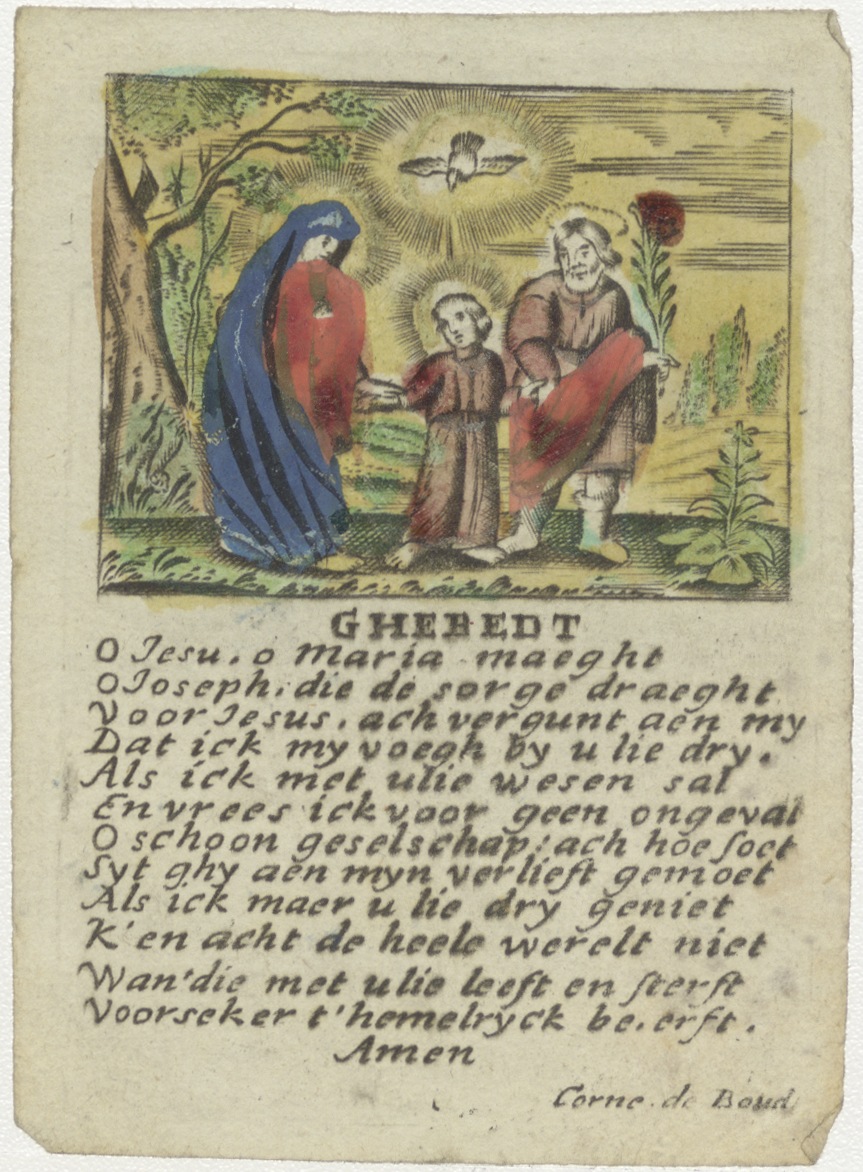 GHEBEDT
O Jesu, o Maria maeght
O Joseph, die de sorge draeght
Voor Jesus, ach vergunt aen my
Dat ick my voegh by u lie dry.
Als ick met ulie wesen sal
En vrees ick voor geen ongeval
O schoon geselschap; ach hoe soet
Syt ghy aen myn verlieft gemoet
Als ick maer u lie dry geniet
K'en acht de heele werelt niet
Wan'die met ulie leeft en sterft
Voorseker t'hemelryck be.erft.
Amen
Corne. de Boud